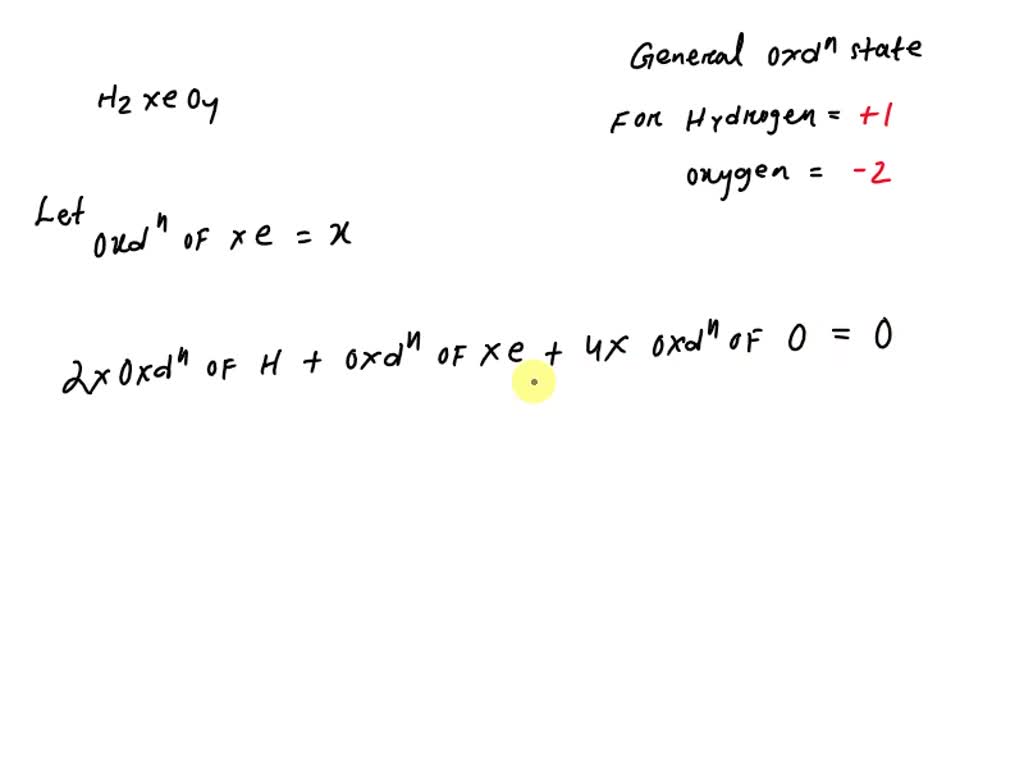 General oxdⁿ state
H2 xe O4
For Hydrogen = +1
oxygen = -2
Let oxdⁿ of xe = x
2x oxdⁿ of H + oxdⁿ of xe + 4x oxdⁿ of O = 0